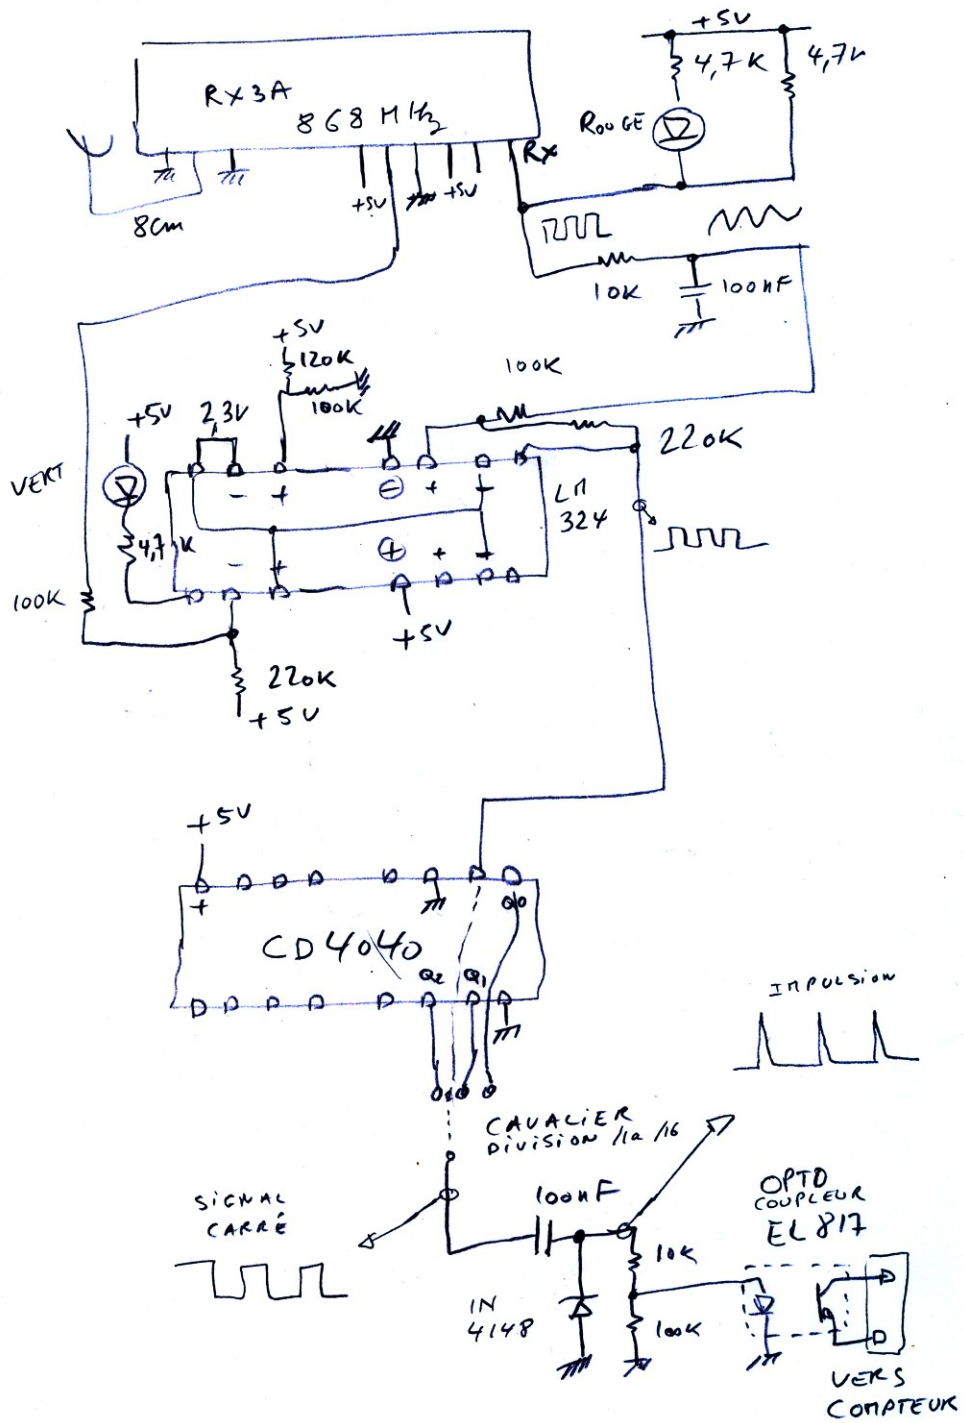 +5V
4,7K
4,7K
ROUGE
RX3A
868 MHz
Rx
+5V
+5V
8cm
10K
100nF
+5V
120K
100K
100K
+5V
2,3V
220K
VERT
- + ⊖ + -
LM
324
4,7K
- + ⊕ + -
100K
+5V
220K
+5V
+5V
+
Q0
CD4040
Q2
Q1
IMPULSION
CAVALIER
DIVISION /1a /16
SIGNAL
CARRÉ
100nF
OPTO
COUPLEUR
EL817
10K
1N
4148
100K
VERS
COMPTEUR